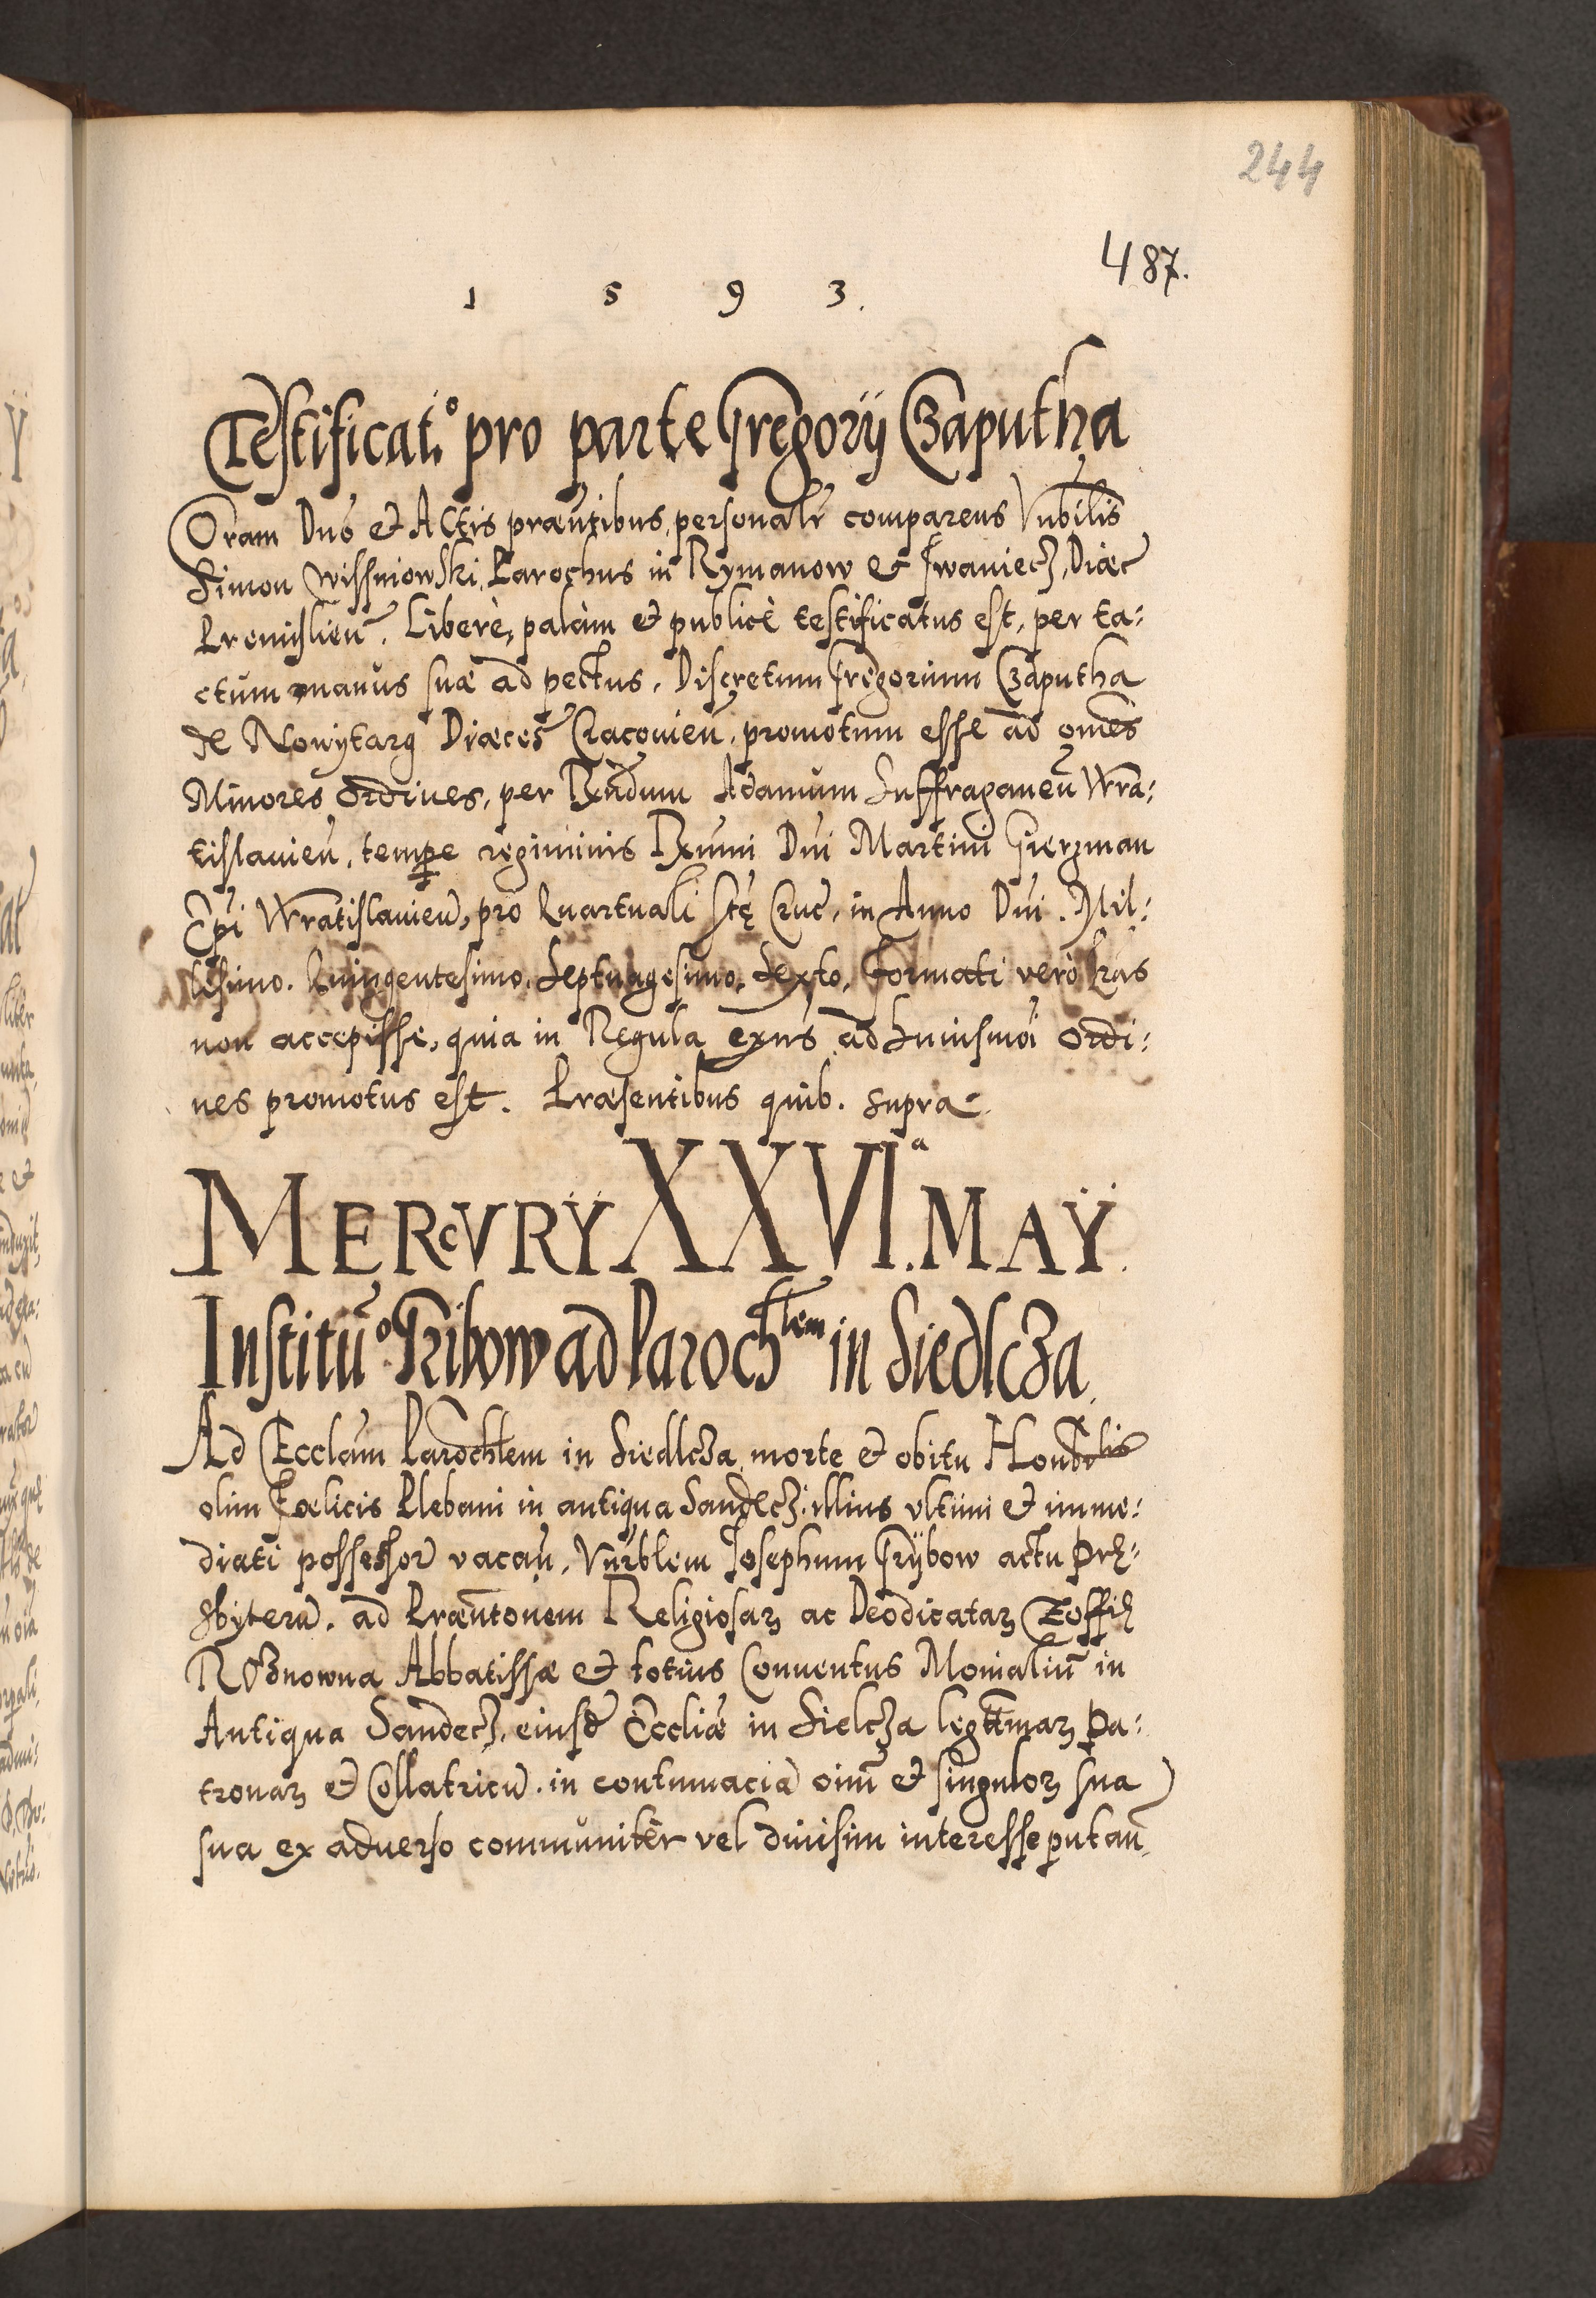 244
487.
1 5 9 3.
Testificat.o pro parte Gregorÿ Czaputha
Coram Dno et Actis praesntibus, personalr comparens Vnblilis
Simon Wissniowski, Parochus in Rymanow et Iwaniecz, Diaec
Premislien. Liberè, palàm et publicè testificatus est, per ta:
ctum manus suae ad pectus, Discretum Gregorium Czaputha
de Nowÿtarg Diaeces Cracovien, promotum esse ad omes
Minores Ordines, per Rndum Adamum Suffraganeu Wra:
tislauien, tempe regiminis Rmmi Dni Martini Gierzman
Epi Wratislauien, pro Quartuali Stę Cruc, in Anno Dni. Mil:
lesimo. Quingentesimo. Septuagesimo, Sexto, Formati verò Lras
non accepisse, quia in Regula exns ad huiusmoi Ordi:
nes promotus est. Praesentibus quib. supra
MERCVRŸ XXVI.a MAŸ.
Institũo Gribow ad Parochlem in Siedlcza.
Ad Ecclam Parochlem in Siedlcza, morte et obitu Honblis
olim Foelicis Plebani in antiqua Sandecz, illius vltimi et imme:
diati possessor vacan, Vnrblem Iosephum Grÿbow actu prę:
sbyteru. ad Praesntonem Religiosarz ac Deodicatarz Zoffię
Roznowna Abbatissae et totius Conuentus Monialiu in
Antiqua Sandecz, eiusd Eccliae in Sielcza legttimarz Pa:
tronarz et Collatricu. in contumacia oium et singulorz sua
sua ex aduerso communitèr vel diuisim interesse putan